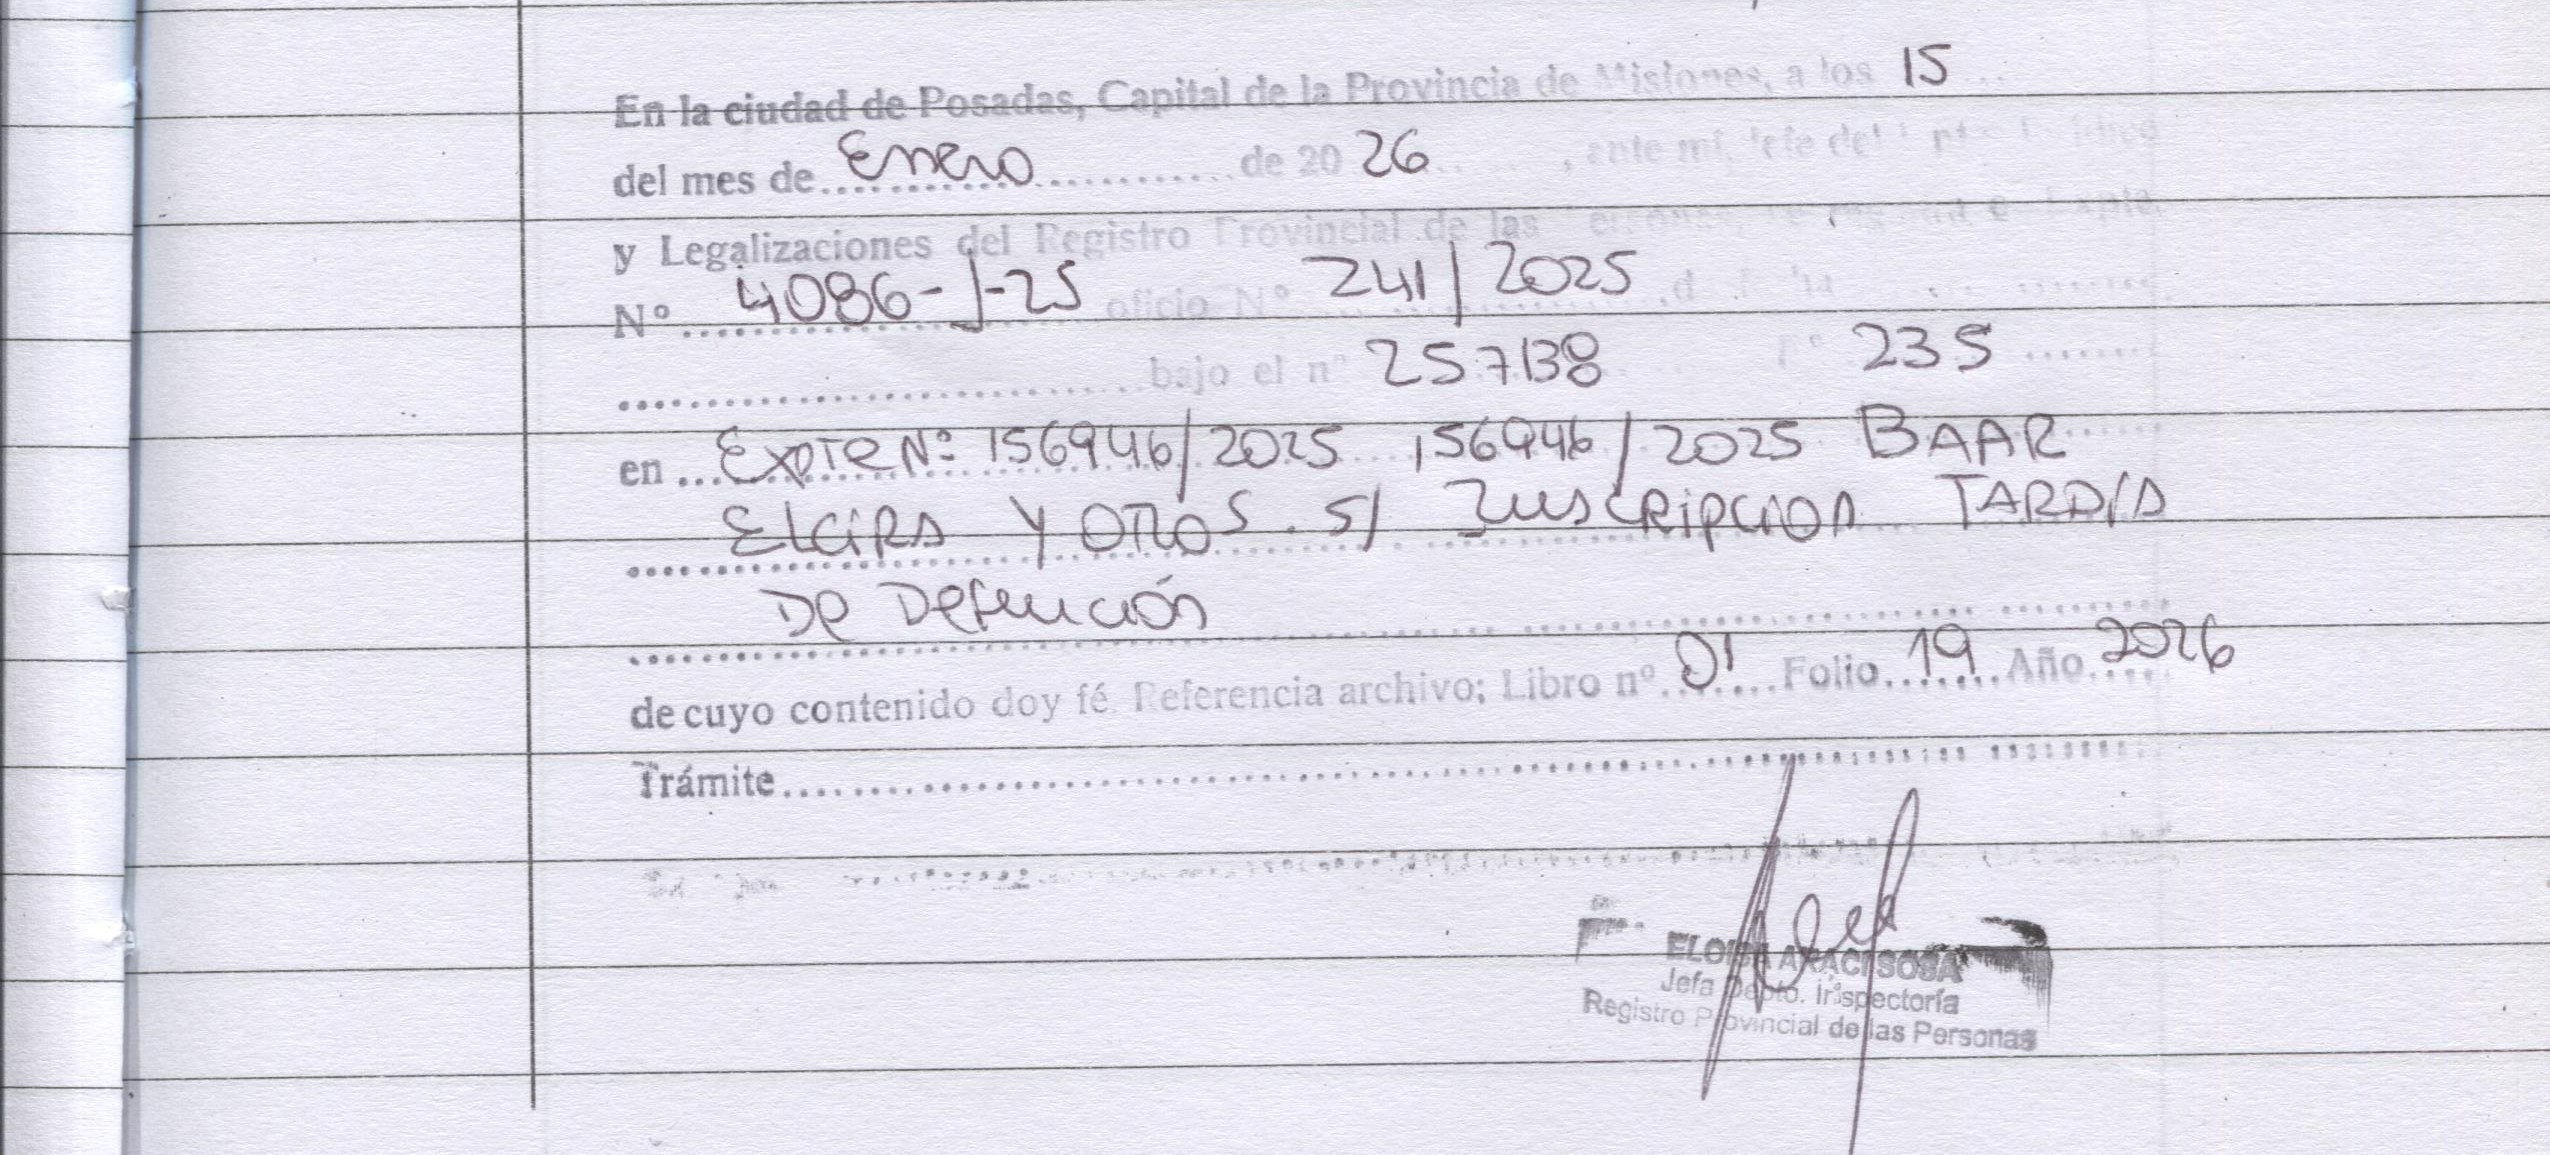 En la ciudad de Posadas, Capital de la Provincia de Misiones, a los 15
del mes de Enero de 20 26, ante mí, Jefe del
y Legalizaciones del Registro Provincial de las
Nº 4086-J-25 oficio Nº 241/2025
bajo el nº 257138 Fº 235
en Expte Nº 156946/2025 156946/2025 BAAR
ELCIRA Y OTROS. S/ INSCRIPCION TARDIA
De Defunción
de cuyo contenido doy fé Referencia archivo; Libro nº 01 Folio 19 Año 2026
Trámite
ELOISA ARACI SOSA
Jefa Depto. Inspectoría
Registro Provincial de las Personas